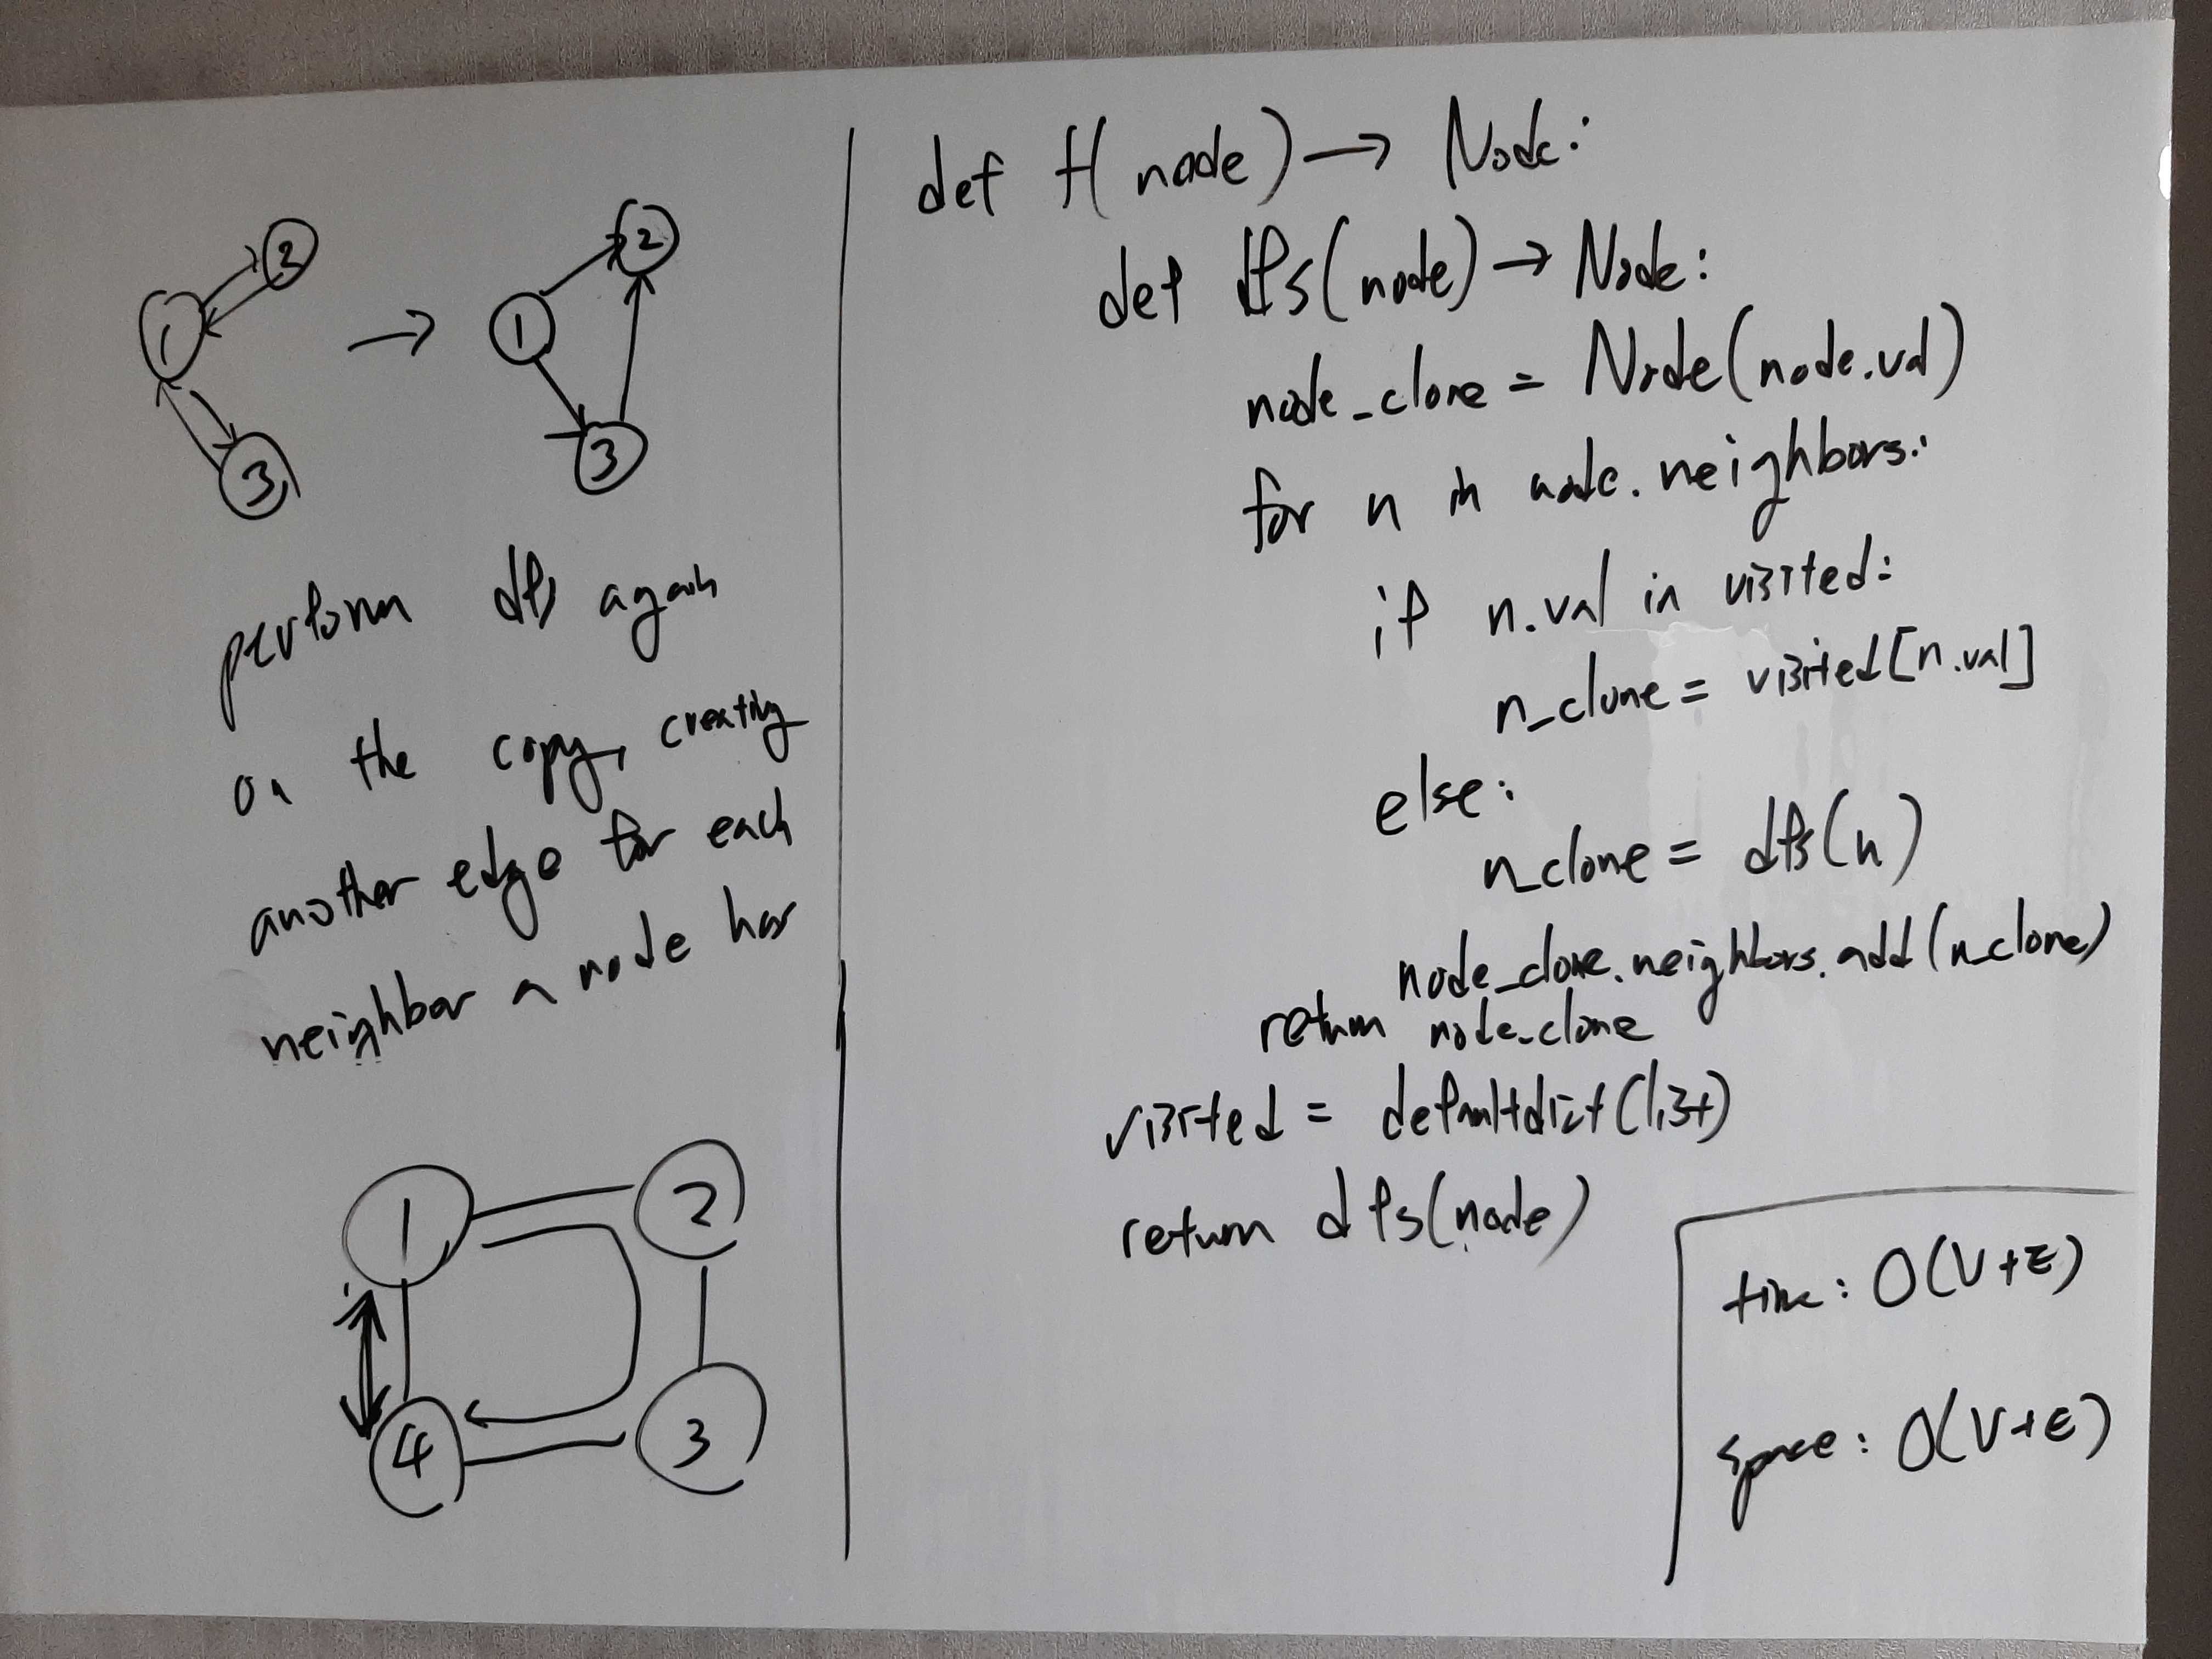 1
2
3
→
1
2
3
perform dfs again
on the copy, creating
another edge for each
neighbor a node has
1
2
4
3
def f(node) → Node:
def dfs(node) → Node:
node_clone = Node(node.val)
for n in node.neighbors:
if n.val in visited:
n_clone = visited[n.val]
else:
n_clone = dfs(n)
node_clone.neighbors.add(n_clone)
return node_clone
visited = defaultdict(list)
return dfs(node)
time: O(V+E)
space: O(V+E)